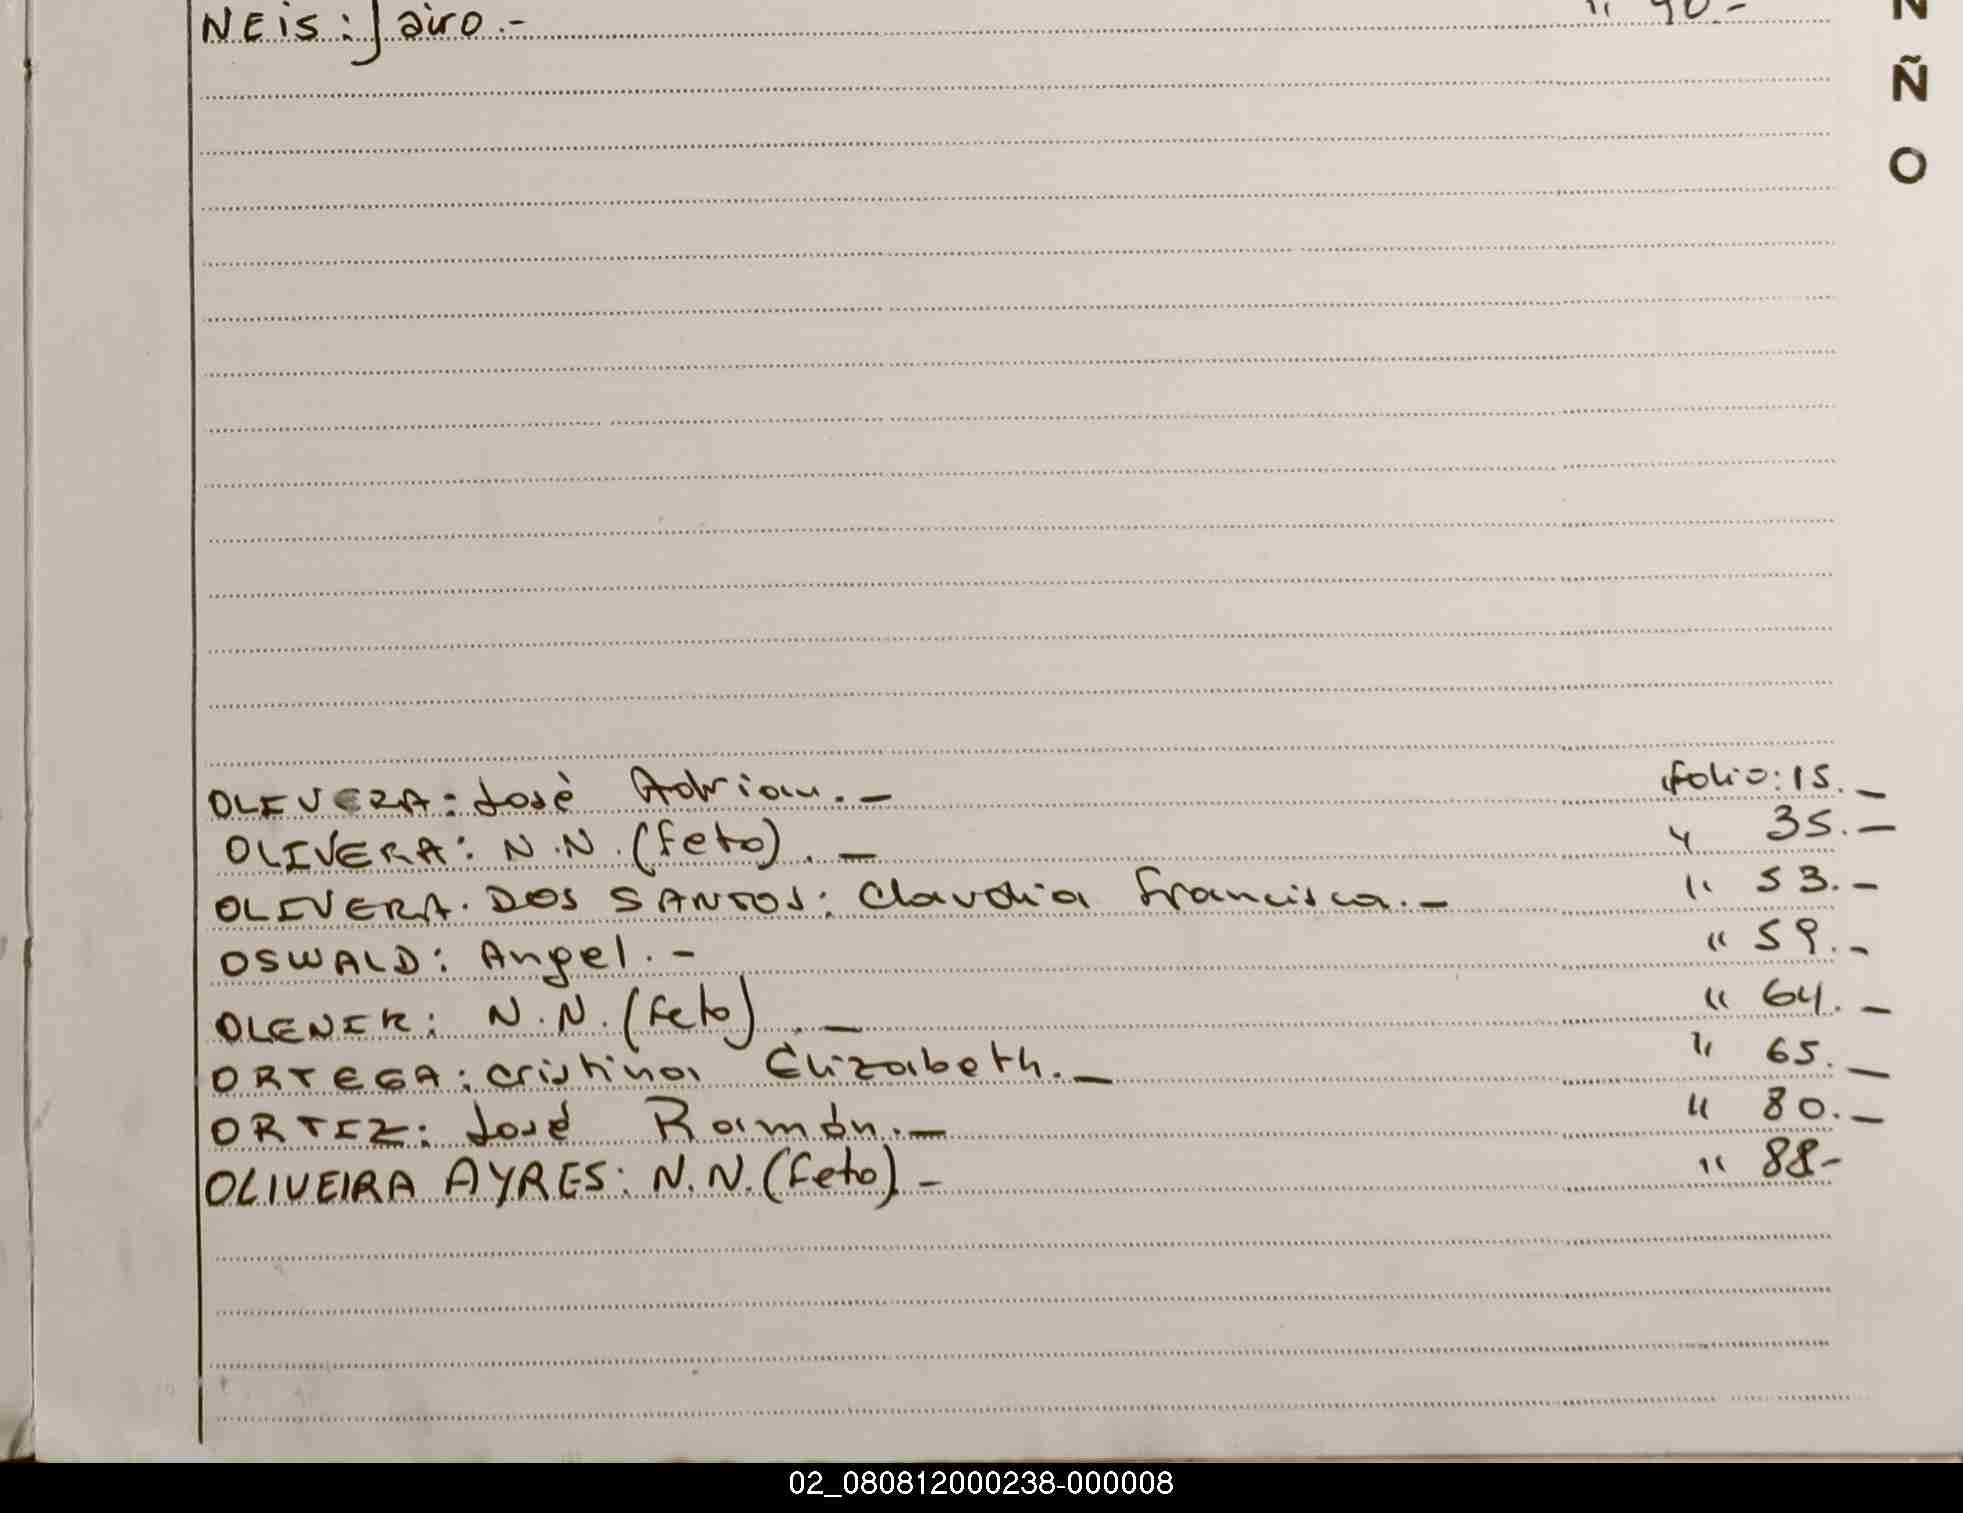 NEIS: Jairo.- " 90.-
N
Ñ
O
OLIVERA: José Adrian.- folio: 15.-
OLIVERA: N.N. (feto).- " 35.-
OLIVERA. DOS SANTOS: Claudia Francisca.- " 53.-
OSWALD: Angel.- " 59.-
OLENIK: N.N. (feto).- " 64.-
ORTEGA: Cristina Elizabeth.- " 65.-
ORTIZ: José Ramón.- " 80.-
OLIVEIRA AYRES: N.N. (feto).- " 88-
02_080812000238-000008